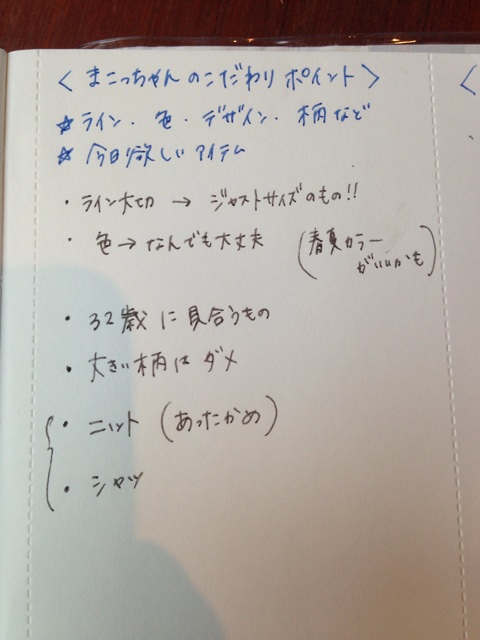 <まこっちゃんのこだわりポイント>
☆ライン・色・デザイン・柄など
☆今日欲しいアイテム
・ライン大切→ジャストサイズのもの!!
・色→なんでも大丈夫(春夏カラーがいいかも)
・32歳に見合うもの
・大きい柄はダメ
・ニット(あったかめ)
・シャツ